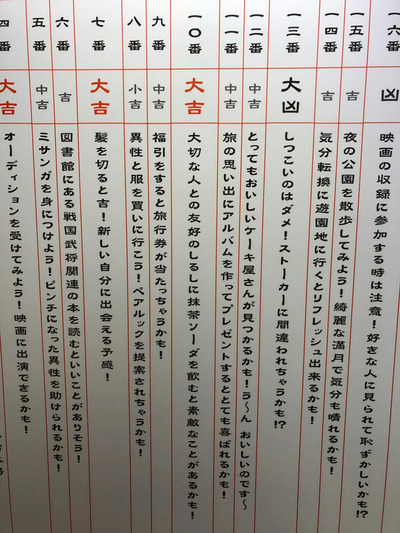 一六番 凶 映画の収録に参加する時は注意！好きな人に見られて恥ずかしいかも!?
一五番 吉 夜の公園を散歩してみよう！綺麗な満月で気分も晴れるかも！
一四番 吉 気分転換に遊園地に行くとリフレッシュ出来るかも！
一三番 大凶 しつこいのはダメ！ストーカーに間違われちゃうかも!?
一二番 中吉 とってもおいしいケーキ屋さんが見つかるかも！う〜ん おいしいのです〜
一一番 中吉 旅の思い出にアルバムを作ってプレゼントするととても喜ばれるかも！
一〇番 大吉 大切な人との友好のしるしに抹茶ソーダを飲むと素敵なことがあるかも！
九番 中吉 福引をすると旅行券が当たっちゃうかも！
八番 小吉 異性と服を買いに行こう！ペアルックを提案されちゃうかも！
七番 大吉 髪を切ると吉！新しい自分に出会える予感！
六番 吉 図書館にある戦国武将関連の本を読むといいことがありそう！
五番 中吉 ミサンガを身につけよう！ピンチになった異性を助けられるかも！
四番 大吉 オーディションを受けてみよう！映画に出演できるかも！